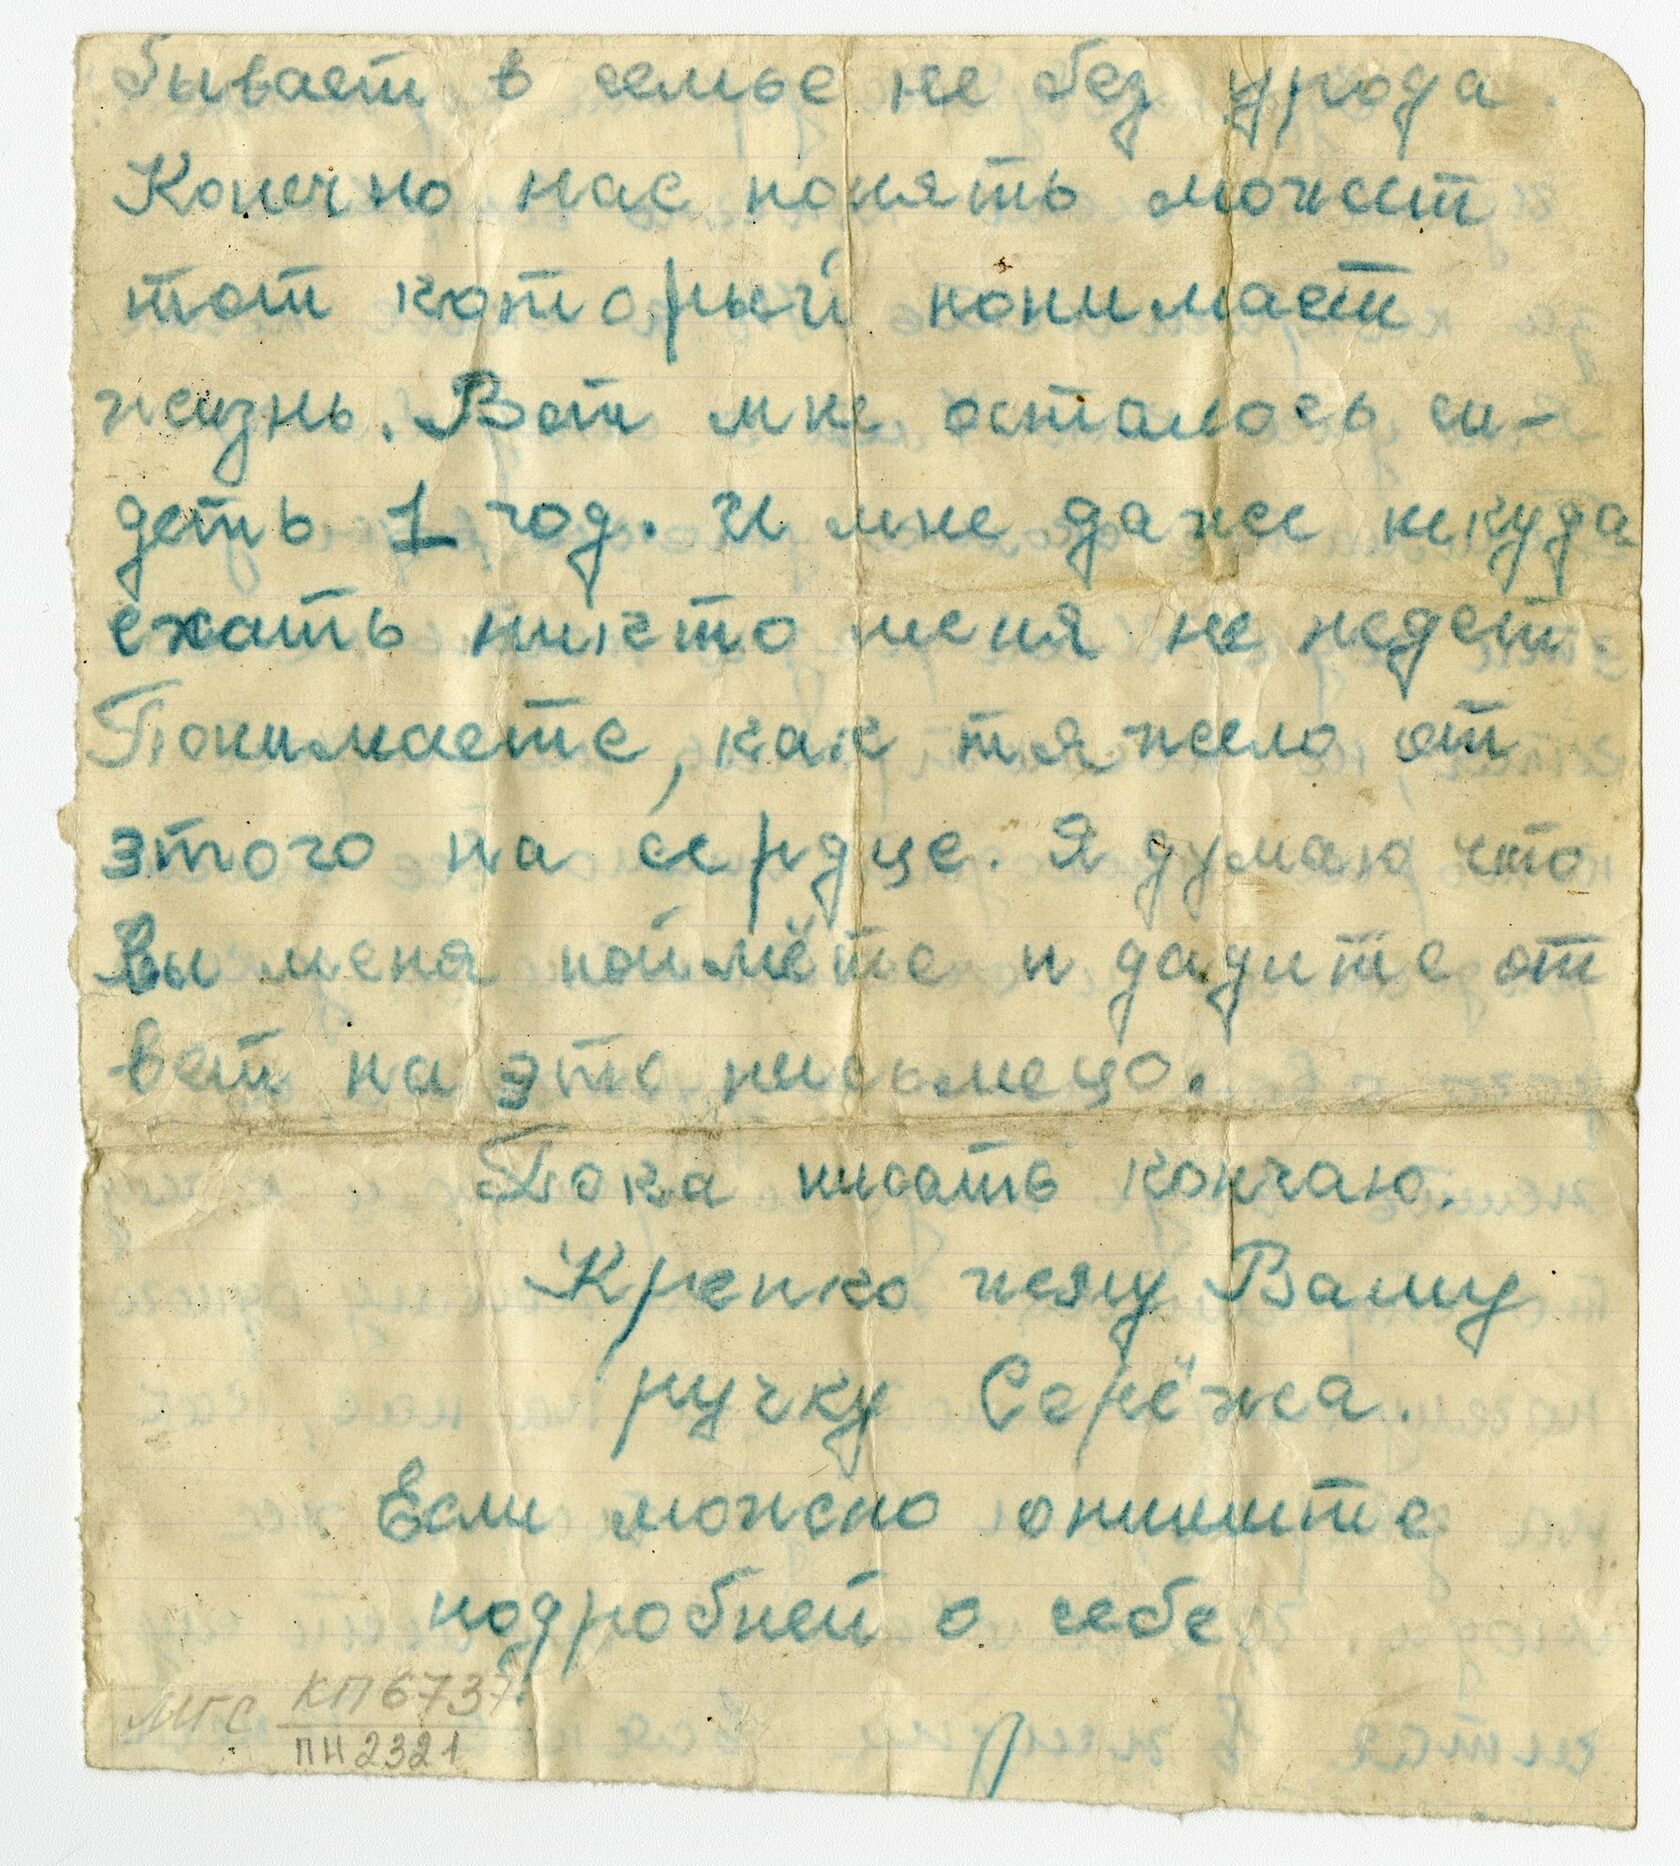 бывает в семье не без урода.
Конечно нас понять может
тот который понимает
жизнь. Вот мне осталось си-
деть 1 год. И мне даже некуда
ехать никто меня не ждет.
Понимаете, как тяжело от
этого на сердце. Я думаю что
Вы меня поймёте и дадите от
вет на это письмецо.
Пока писать кончаю.
Крепко жму Вашу
ручку Серёжа.
Если можно опишите
подробней о себе
МГС КП6737
ПИ2321